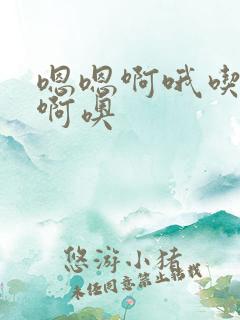 嗯嗯啊哦喫
啊嗅
悠游小猪
未经同意禁止转载